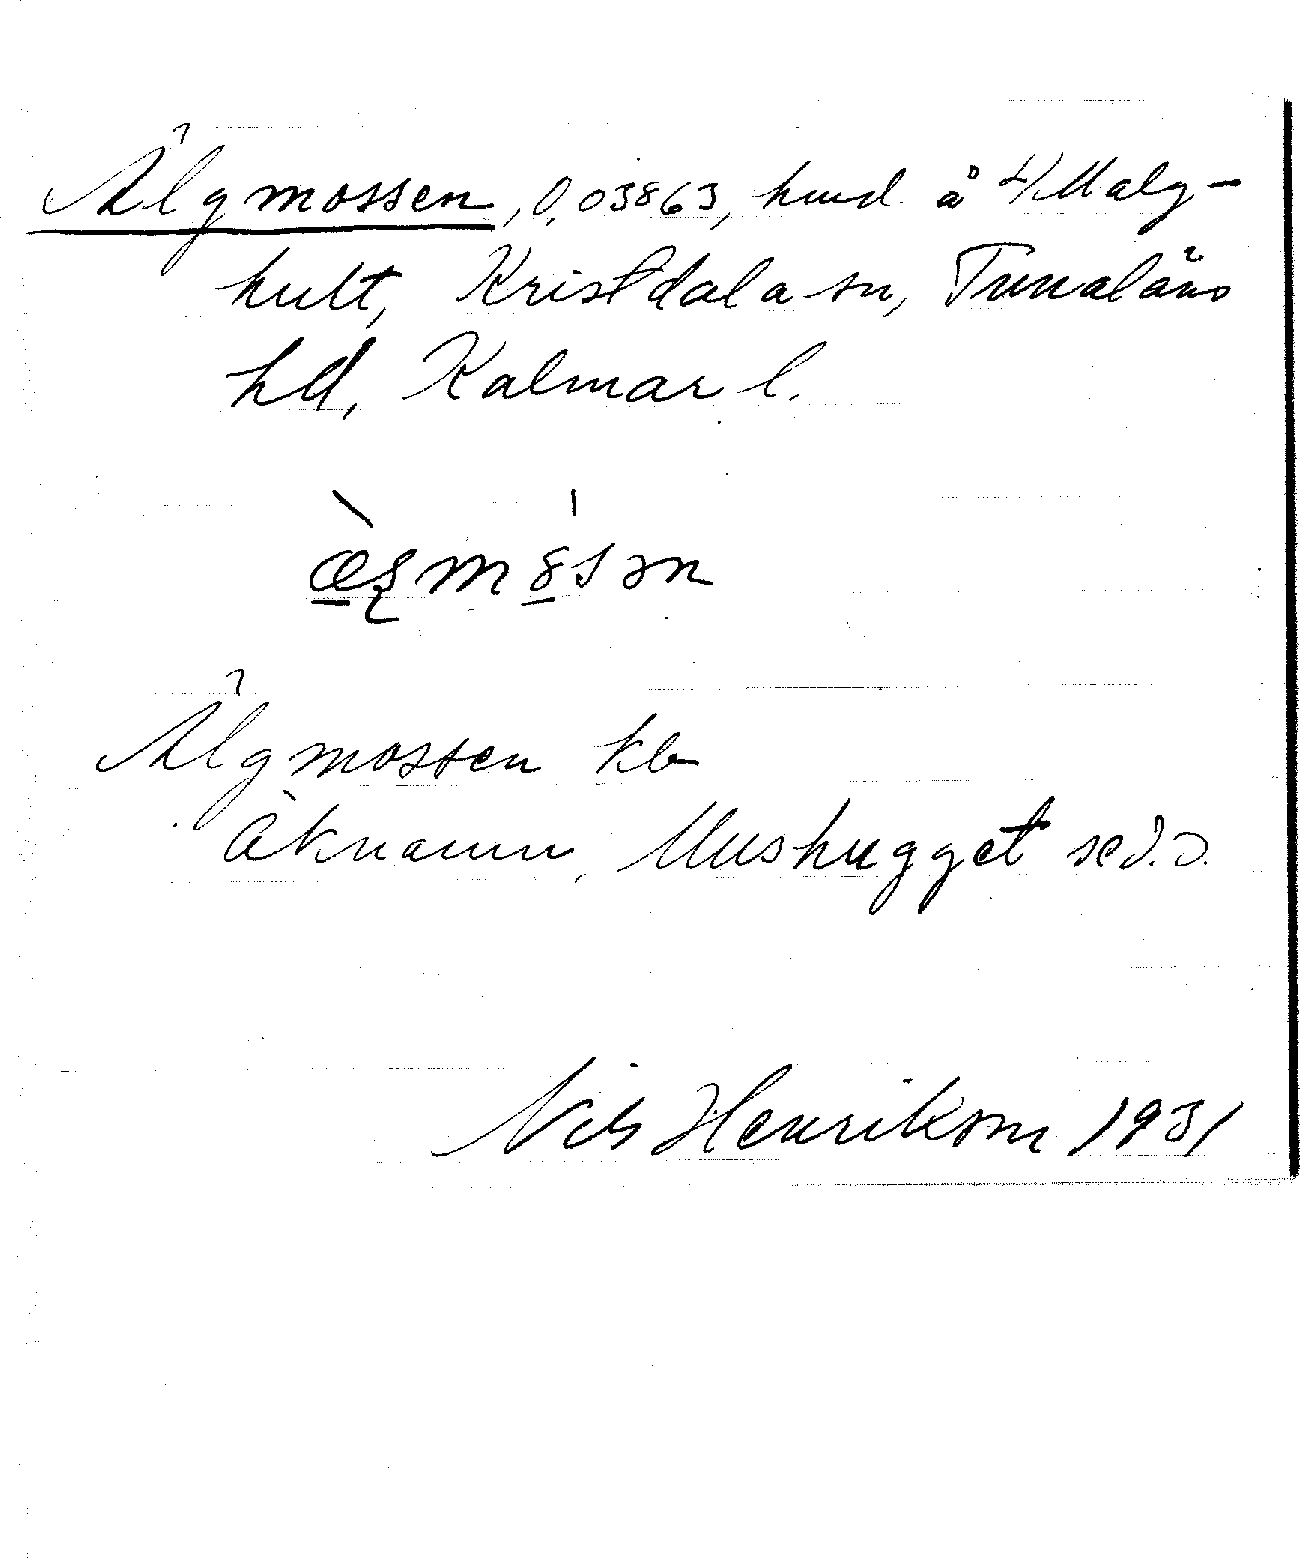 Älgmossen, 0,03863, hmd å 4/Malg-
hult, Kristdala sn, Tunaläns
hd, Kalmar l.
Älgmossen kb
Öknamn, Mushugget se d.o.
Nils Henrikson 1931